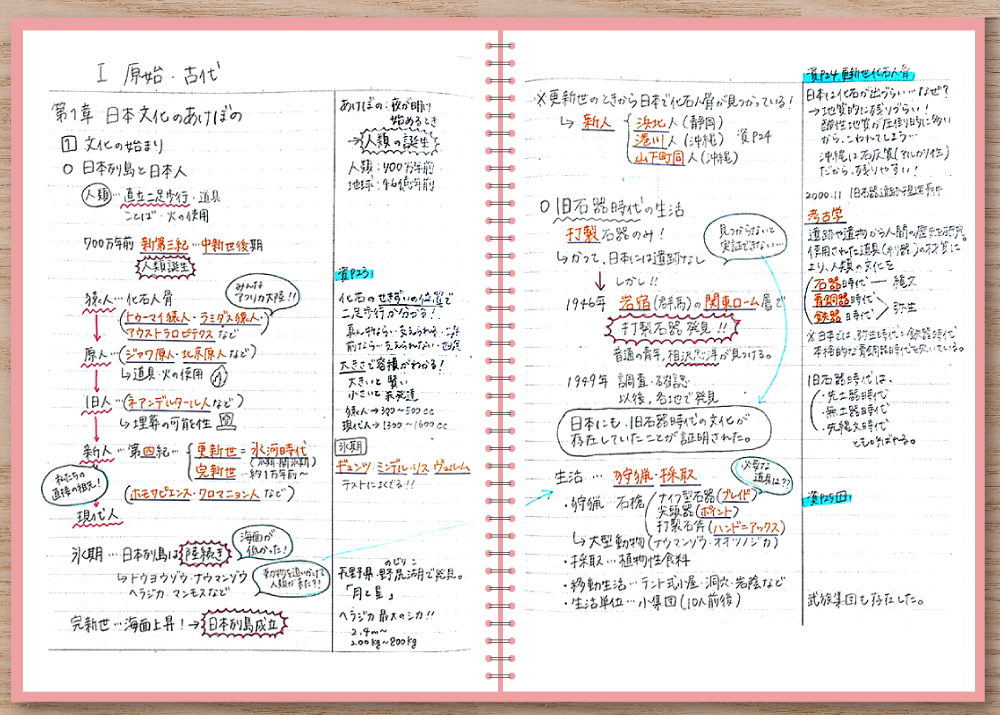 I 原始・古代
第1章 日本文化のあけぼの
1 文化の始まり
○ 日本列島と日本人
人類…直立二足歩行・道具
ことば・火の使用
700万年前 新第三紀…中新世後期
人類誕生
みんな
アフリカ大陸!!
猿人…化石人骨
(トゥーマイ猿人・ラミダス猿人・
アウストラロピテクス など)
原人…(ジャワ原人・北京原人 など)
↳道具・火の使用
旧人…(ネアンデルタール人 など)
↳埋葬の可能性
新人…第四紀…
更新世=氷河時代
(氷期・間氷期)
完新世…約1万年前~
私たちの
直接の祖先!
(ホモ=サピエンス・クロマニョン人 など)
現代人
氷期…日本列島は陸続き
海面が
低かった!
↳トウヨウゾウ・ナウマンゾウ
ヘラジカ・マンモスなど
動物を追いかけて
人類が来た?!
完新世…海面上昇!→日本列島成立
あけぼの:夜が明け
始めるとき
→人類の誕生
人類:700万年前
地球:46億年前
資P23
化石のせきずいの位置で
二足歩行が分かる!
真ん中なら…支えられる
前なら…支えられない
大きさで容積がわかる!
大きいと 賢い
小さいと 未発達
猿人→300~500cc
現代人→1300~1600cc
氷期
ギュンツ・ミンデル・リス・ヴュルム
テストによくでる!!
のじりこ
長野県・野尻湖で発見。
「月と星」
ヘラジカ最大のシカ!!
2.4m~
200kg~800kg
※更新世のときから日本で化石人骨が見つかっている!
↳新人
浜北人(静岡)
港川人(沖縄) 資P24
山下町洞人(沖縄)
○旧石器時代の生活
打製石器のみ!
↳かつて、日本には遺跡なし
見つからないと
実証できない…
↓しかし!!
1946年 岩宿(群馬)の関東ローム層で
打製石器 発見!!
普通の青年、相沢忠洋が見つける。
1949年 調査・確認
以後、各地で発見
日本にも、旧石器時代の文化が
存在していたことが証明された。
生活…狩猟・採取
必要な
道具は??
・狩猟…石槍
ナイフ型石器(ブレイド)
尖頭器(ポイント)
打製石斧(ハンドニアックス)
↳大型動物(ナウマンゾウ・オオツノジカ)
・採取…植物性食料
・移動生活…テント式小屋・洞穴・岩陰など
・生活単位…小集団(10人前後)
資P24 更新世化石人骨
日本は化石が出づらい…なぜ?
→地質的に残りづらい!
酸性地質が圧倒的に多い
から、こわれてしまう…
沖縄は石灰質(アルカリ性)
だから、残りやすい!
2000.11 旧石器遺跡捏造事件
考古学
遺跡や遺物から人間の歴史を研究。
使用された道具(利器)の材質に
より、人類の文化を
石器時代 — 縄文
青銅器時代
鉄器時代
弥生
※日本では、弥生時代=鉄器時代
本格的な青銅器時代を欠いている。
旧石器時代は、
・先土器時代
・無土器時代
・先縄文時代
ともよばれる。
資P25 図
武族集団も存在した。